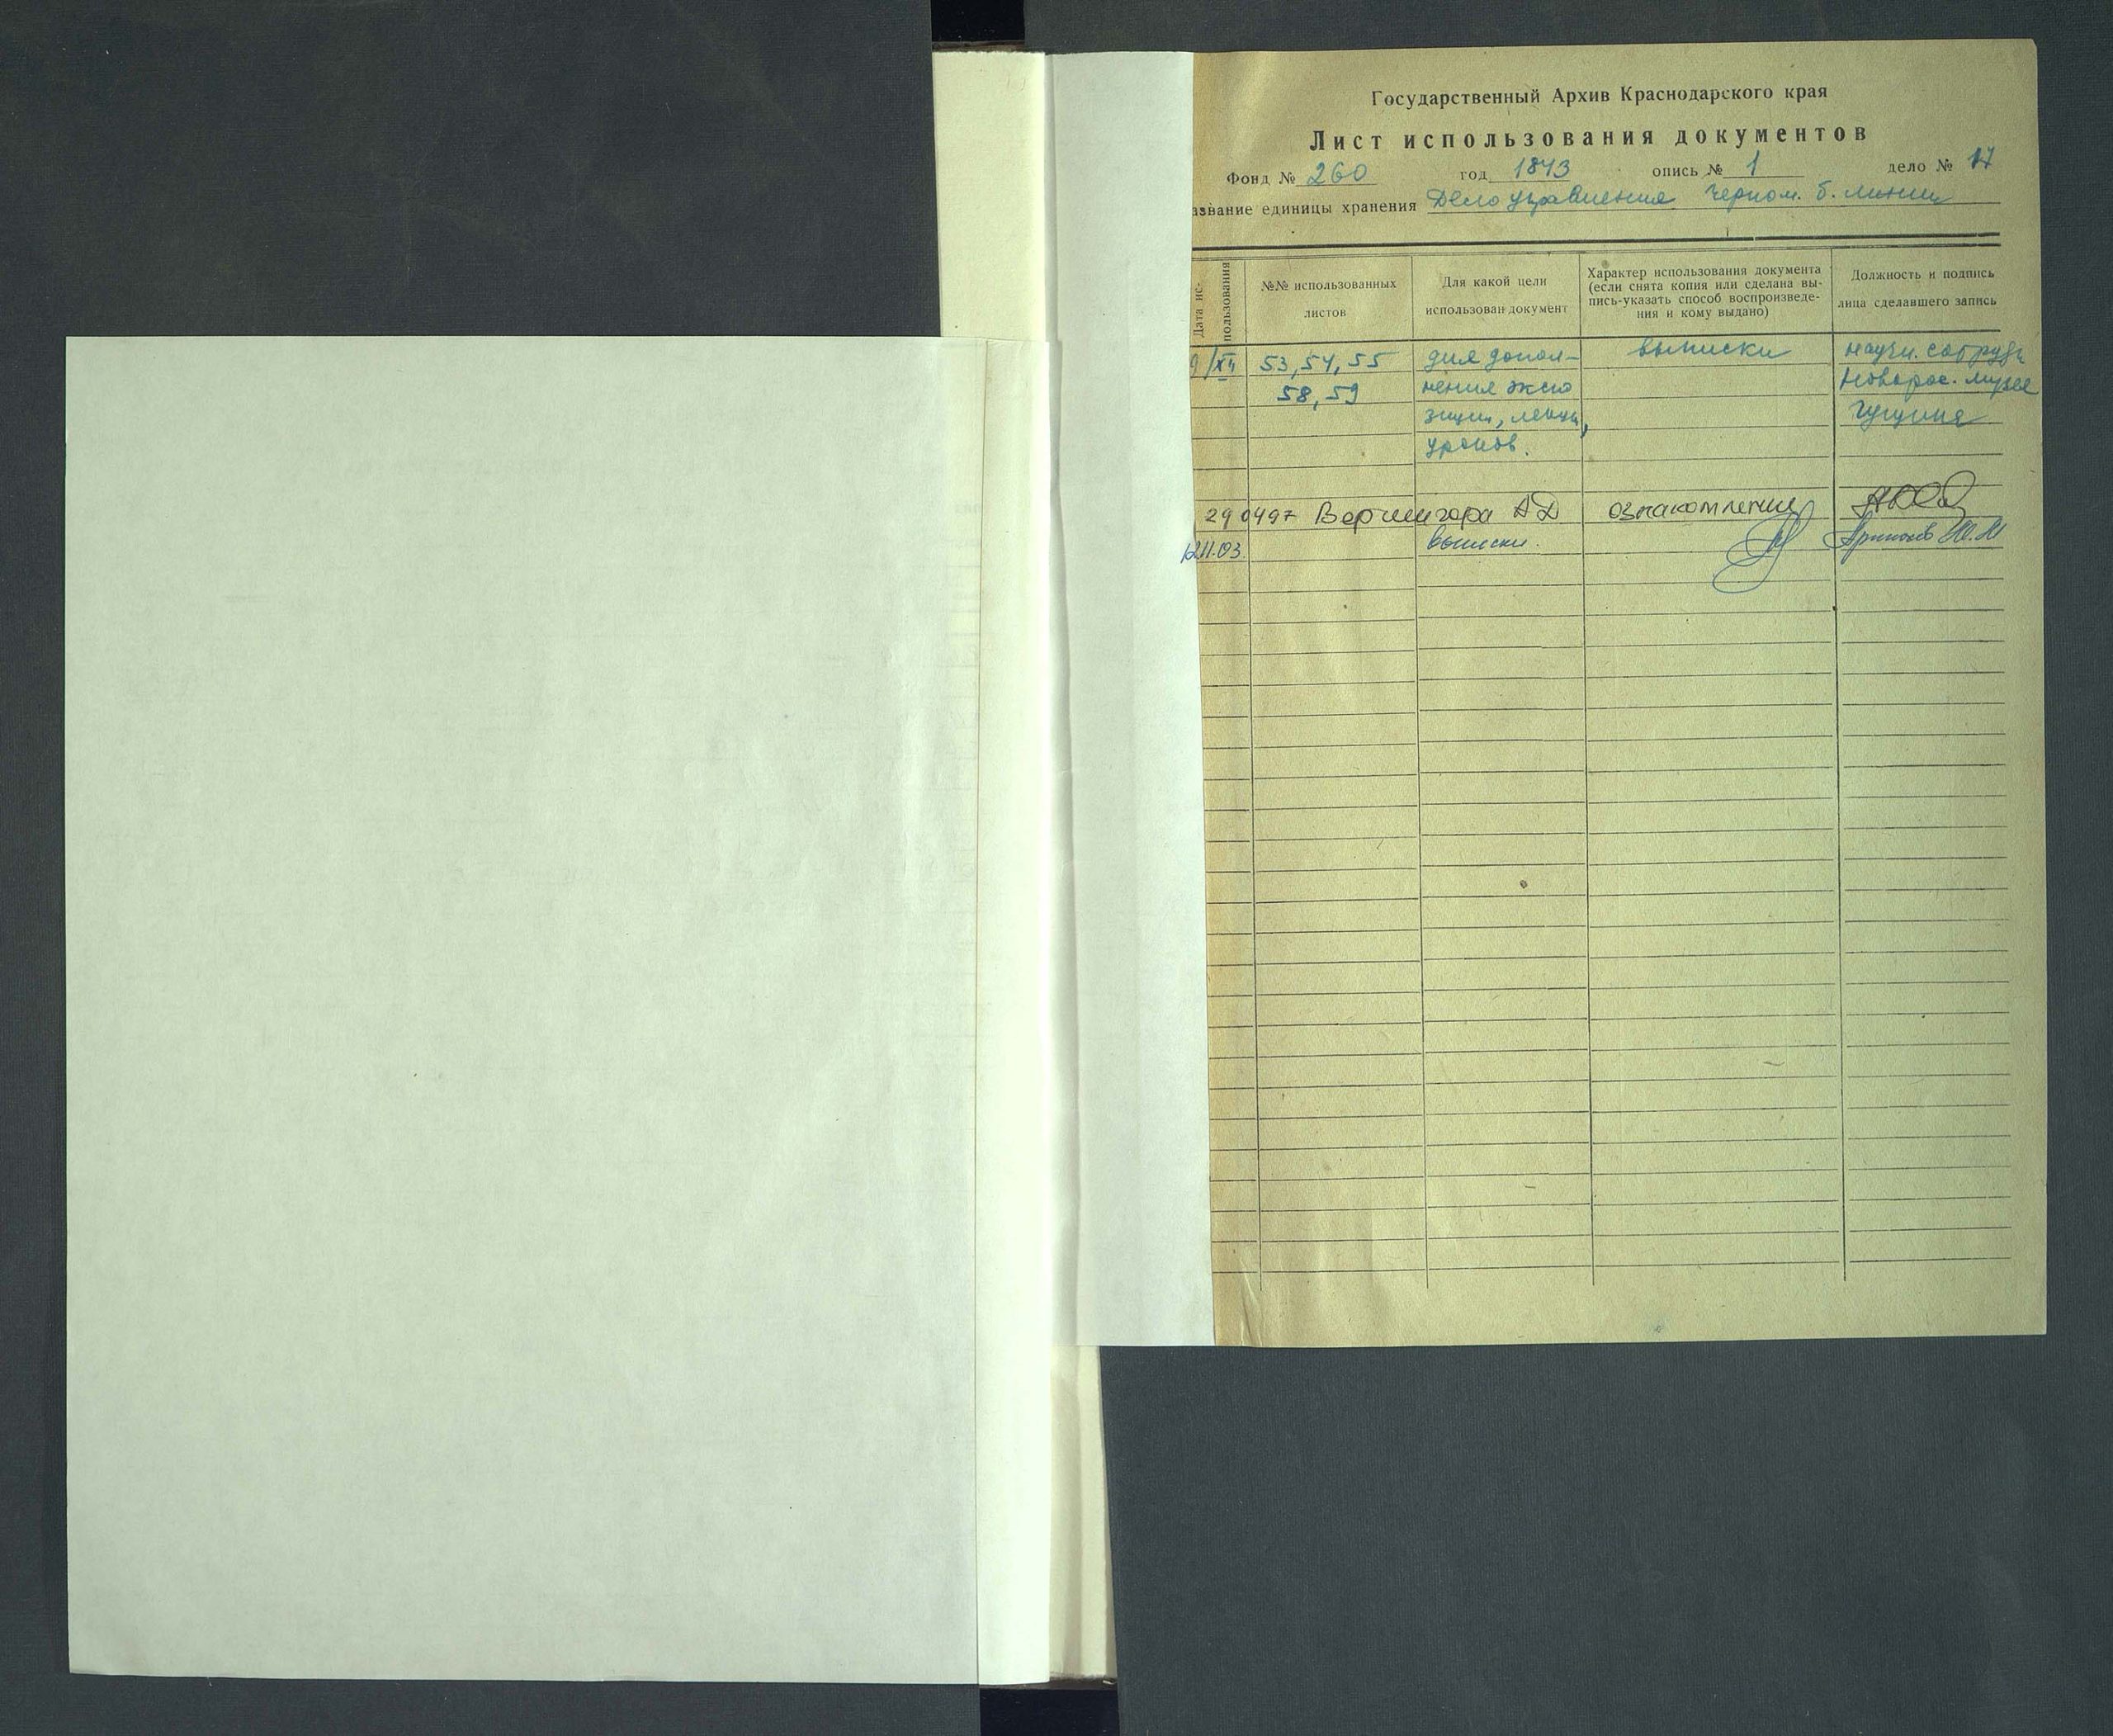 Государственный Архив Краснодарского края
Лист использования документов
Фонд № 260 год 1843 опись № 1 дело № 17
азвание единицы хранения Дело управления Черном. б. линии
Дата ис-
пользования
№№ использованных
листов
Для какой цели
использован документ
Характер использования документа
(если снята копия или сделана вы-
пись-указать способ воспроизведе-
ния и кому выдано)
Должность и подпись
лица сделавшего запись
9/XII 53, 54, 55 для допол- выписки научн. сотрудн
58, 59 нения экспо Новорос. музея
зиции, лекций,
уроков.
290497 Вершигора АД ознакомление
12.11.03. выписки.